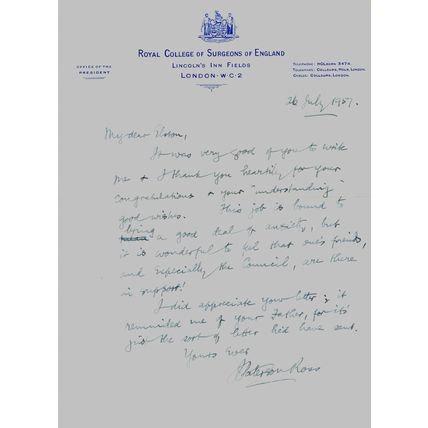 ROYAL COLLEGE OF SURGEONS OF ENGLAND
LINCOLN'S INN FIELDS
LONDON·W·C·2
OFFICE OF THE
PRESIDENT
TELEPHONE: HOLBORN 3474
TELEGRAMS: COLLSURG, HOLB, LONDON.
CABLES: COLLSURG, LONDON.
26 July 1957.
My dear
It was very good of you to write
me & I thank you heartily for your
congratulations & your "understanding"
good wishes. This job is bound to
bring a good deal of anxiety, but
it is wonderful to feel that one's friends,
and especially the Council, are there
in support!
I did appreciate your letter & it
reminded me of your Father, for it's
just the sort of letter he'd have sent.
Yours ever
Paterson Ross